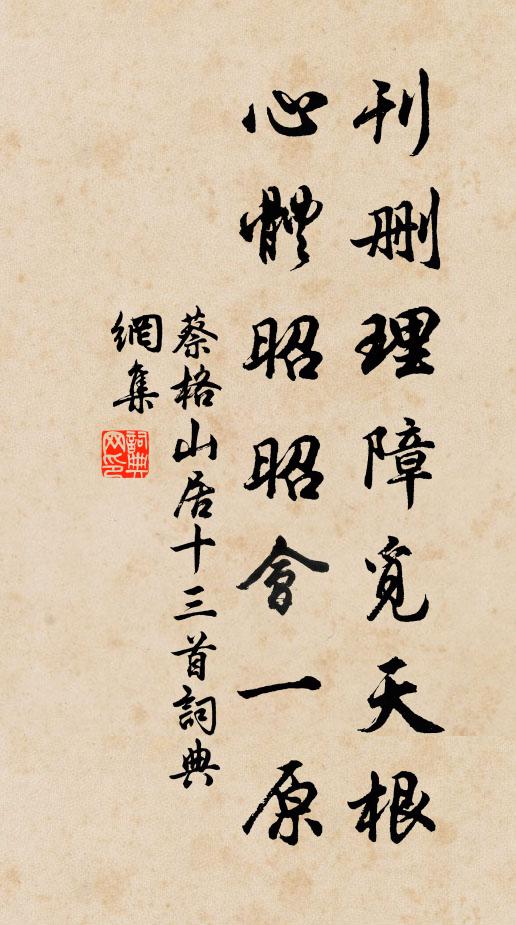 刊刪理障覓天根
心體昭昭會一原
蔡格山居十三首詞典
網集
詞典網印